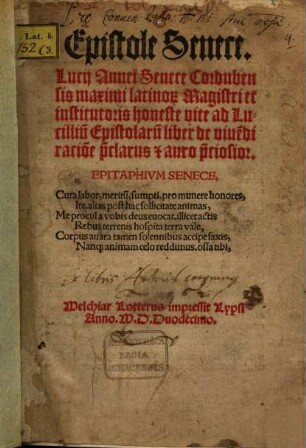 Epistole Senece.
Lucij Annei Senece Cordubensis
maximi latinoꝝ Magistri et
institutoris honeste vite ad Lucilliũ
Epistolarũ liber de viuẽdi
raciõe p̃clarus & auro p̃ciosior.
EPITAPHIVM SENECE,
Cura labor, meritũ, sumpti, pro munere honores,
Ite, alias posthac sollicitate animas,
Me procul a vobis deus euocat. illicet actis
Rebus terrenis hospita terra vale,
Corpus auara tamen solennibus accipe saxis,
Nanq; animam celo reddimus. ossa tibi,
Ex libris
Melchiar Lotterus impressit Lypsi
Anno. M.D.Duodecimo.
REGIA
MONACENSIS